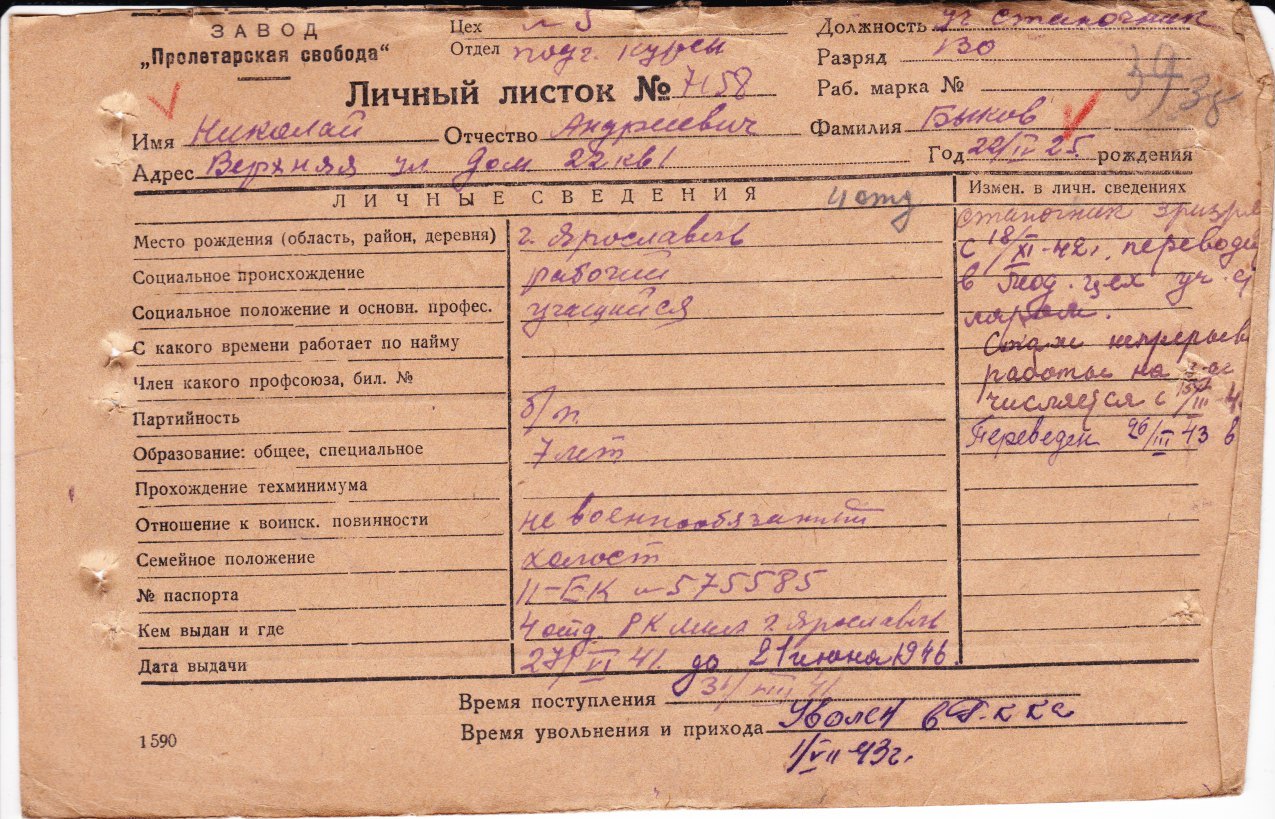 ЗАВОД
„Пролетарская свобода“
Цех № 5
Отдел подг. курсы
Должность уч станочник
Разряд
Раб. марка №
Личный листок № 7158
Имя Николай Отчество Андреевич Фамилия Быков
Адрес Верхняя ул дом 22 кв 1 Год 22/IV 25. рождения
ЛИЧНЫЕ СВЕДЕНИЯ 4 отд
Измен. в личн. сведениях
Место рождения (область, район, деревня) г. Ярославль
Социальное происхождение рабочий
Социальное положение и основн. професс. учащийся
С какого времени работает по найму
Член какого профсоюза, бил. №
Партийность б/п.
Образование: общее, специальное 7 лет
Прохождение техминимума
Отношение к воинск. повинности не военнообязанный
Семейное положение холост
№ паспорта II-ЕК № 575585
Кем выдан и где 4 отд. РК мил г. Ярославль
Дата выдачи 27/VI 41. до 21 июня 1946.
станочник
с 18/XI-42г.
в цех уч.
Стаж
работы на
числяется с III
Переведен 26/III 43 в
Время поступления 41
Время увольнения и прихода Уволен в Р-ККА
1/VII-43г.
1590